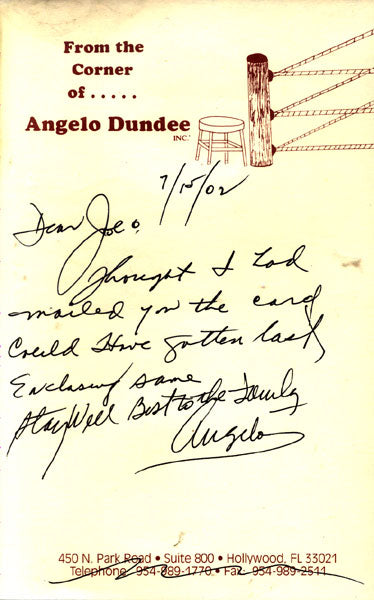 From the
Corner
of .....
Angelo Dundee
INC.
7/15/02
Dear Joe:
Thought I had
mailed you the card
Could Have gotten lost,
Enclosing same
Stay Well Best to the Family
Angelo
450 N. Park Road • Suite 800 • Hollywood, FL 33021
Telephone 954-989-1770 • Fax 954-989-2511